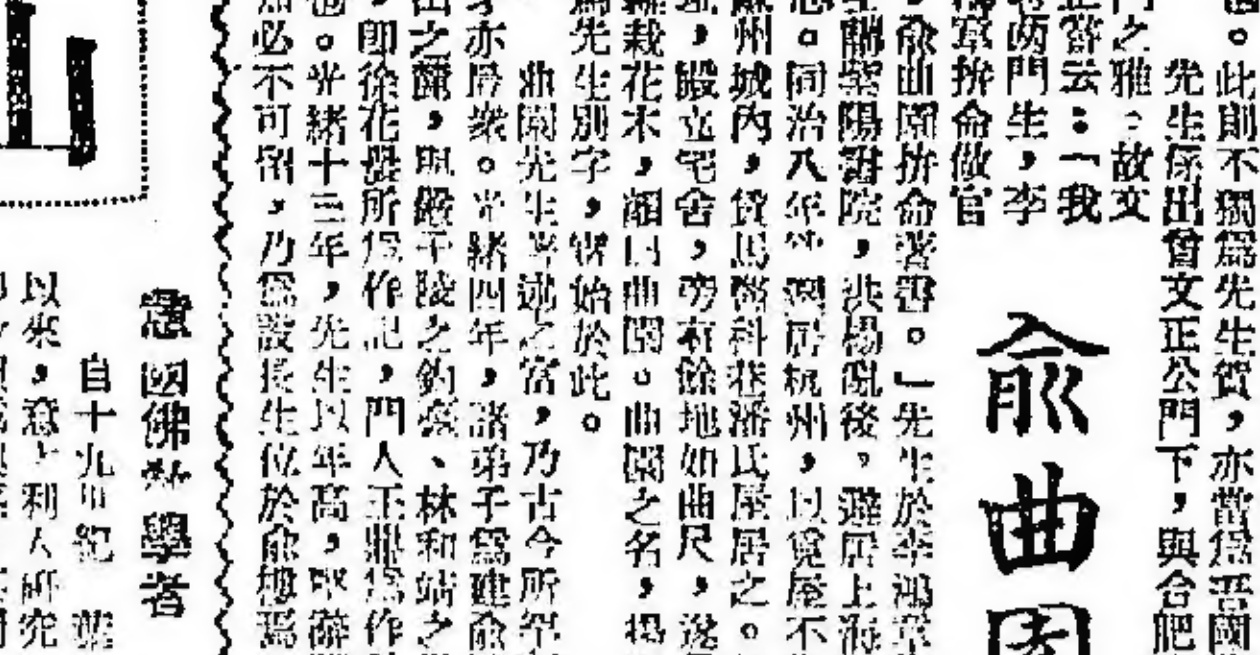 。此則不獨爲先生賀,亦當爲吾國
先生係出曾文正公門下,與合肥
之雅。故文
正嘗云:「我
兩門生,李
拚命做官
俞曲園
,俞曲園拚命著書。」先生於李鴻章
紫陽書院,洪楊亂後,避居上海
。同治八年 居杭州,以覓屋不
州城內,賃馬醫科巷潘氏屋居之。
,殿立宅舍,旁有餘地如曲尺,遂
栽花木,顏曰曲園。曲園之名,
先生別字,實始於此。
園先生著述之富,乃古今所罕
亦最衆。光緒四年,諸弟子爲建俞
之麓,與嚴子陵之釣臺、林和靖之
,即徐花農所爲作記,門人王鼎爲作
。光緒十三年,先生以年高,堅辭
必不可留,乃爲設長生位於俞樓焉
意國佛教學者
自十九世紀
以來,意大利人研究